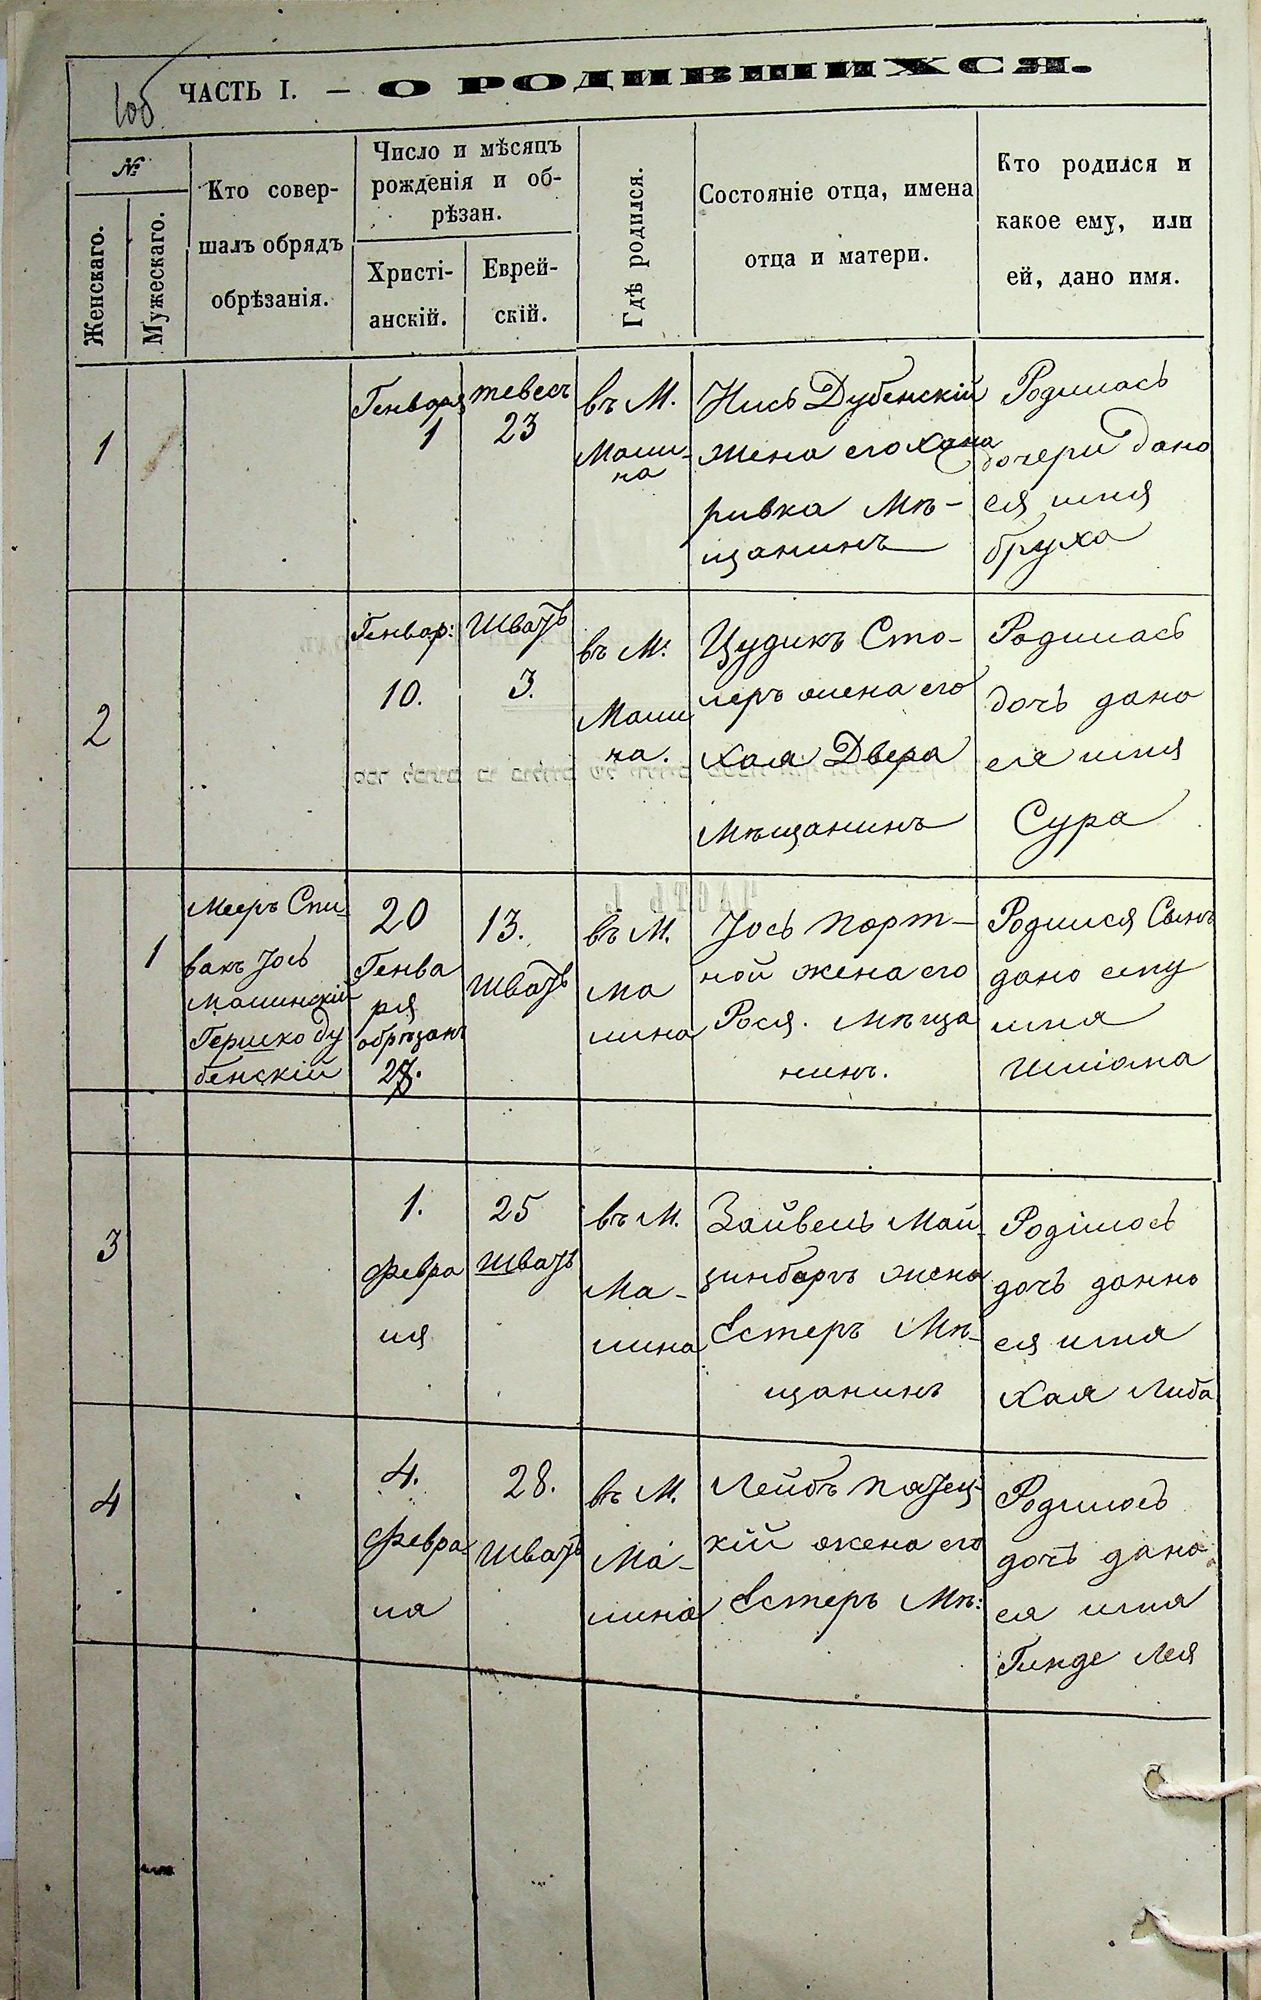 10б
ЧАСТЬ I. — О РОДИВШИХСЯ.
№
Женскаго.
Мужескаго.
Кто совер-
шалъ обрядъ
обрѣзанія.
Число и мѣсяцъ
рожденія и об-
рѣзан.
Христі-
анскій.
Еврей-
скій.
Гдѣ родился.
Состояніе отца, имена
отца и матери.
Кто родился и
какое ему, или
ей, дано имя.
1
Генворя
1
тевесъ
23
въ М.
Мали-
на
Нись Дубенскій
жена его Хана
ривка Мѣ-
щанинъ
Родилась
дочери дано
ея имя
бруха
2
Генвар:
10.
Шватъ
3.
въ М.
Мали
на.
Цудикъ Сто-
леръ жена его
Хая Двера
Мѣщанинъ
Родилась
дочь дано
ея имя
Сура
1
Мееръ Спи-
вакъ Іось
Малинскій
Гершко Ду
бенскій
20
Генва
ря
обрѣзанъ
27.
13.
Шватъ
въ М.
Ма
лина
Іось порт-
ной жена его
Рося. Мѣща
нинъ.
Родился Сынъ
дано ему
имя
Шліома
3
1.
Февра
ля
25
Шватъ
въ М.
Ма-
лина
Зайвель Май-
зинбаргъ жена
Естеръ Мѣ-
щанинъ
Роділась
дочь данно
ея имя
Хая Либа
4
4.
Февра-
ля
28.
Шватъ
въ М.
Ма-
лина
Лейбъ
кій жена его
Естеръ Мѣ:
Родилась
дочь дано
ея имя
Гинде Лея